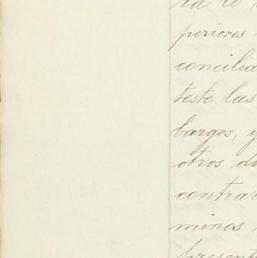 periores
concilia
teste las
bargos, y
otros di
contrar
minos
present